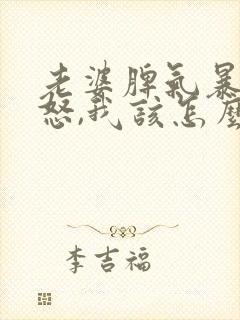 老婆脾气暴
怒,我该怎麼
李吉福